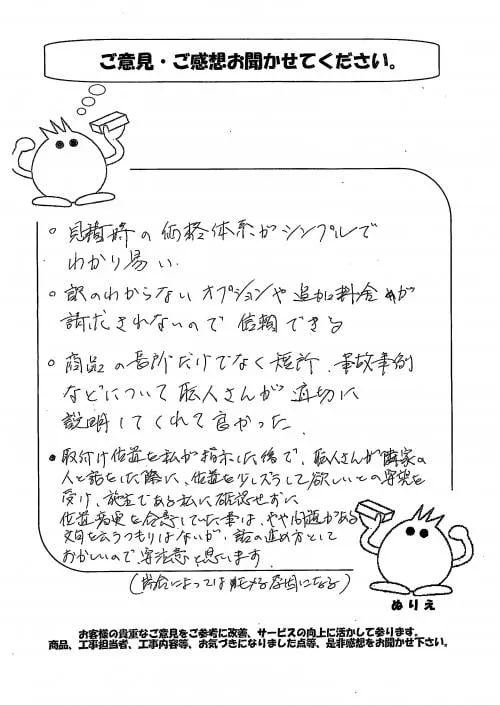 ご意見・ご感想お聞かせてください。
○ 見積時の価格体系がシンプルで
わかり易い.
○ 訳のわからないオプションや追加料金が
請求されないので信頼できる
○ 商品の長所だけでなく短所、事故事例
などについて職人さんが適切に
説明してくれて良かった.
● 取付け位置を私が指示した後で、職人さんが隣家の
人と話をした際に、位置を少しズラして欲しいとの要望を
受け、施主である私に確認せずに
位置変更を合意していた事は、やや問題がある
文句を云うつもりはないが、話の進め方として
おかしいので、要注意と思います.
(場合によっては
原因になる)
ぬりえ
お客様の貴重なご意見をご参考に改善、サービスの向上に活かして参ります。
商品、工事担当者、工事内容等、お気づきになりました点等、是非感想をお聞かせ下さい。